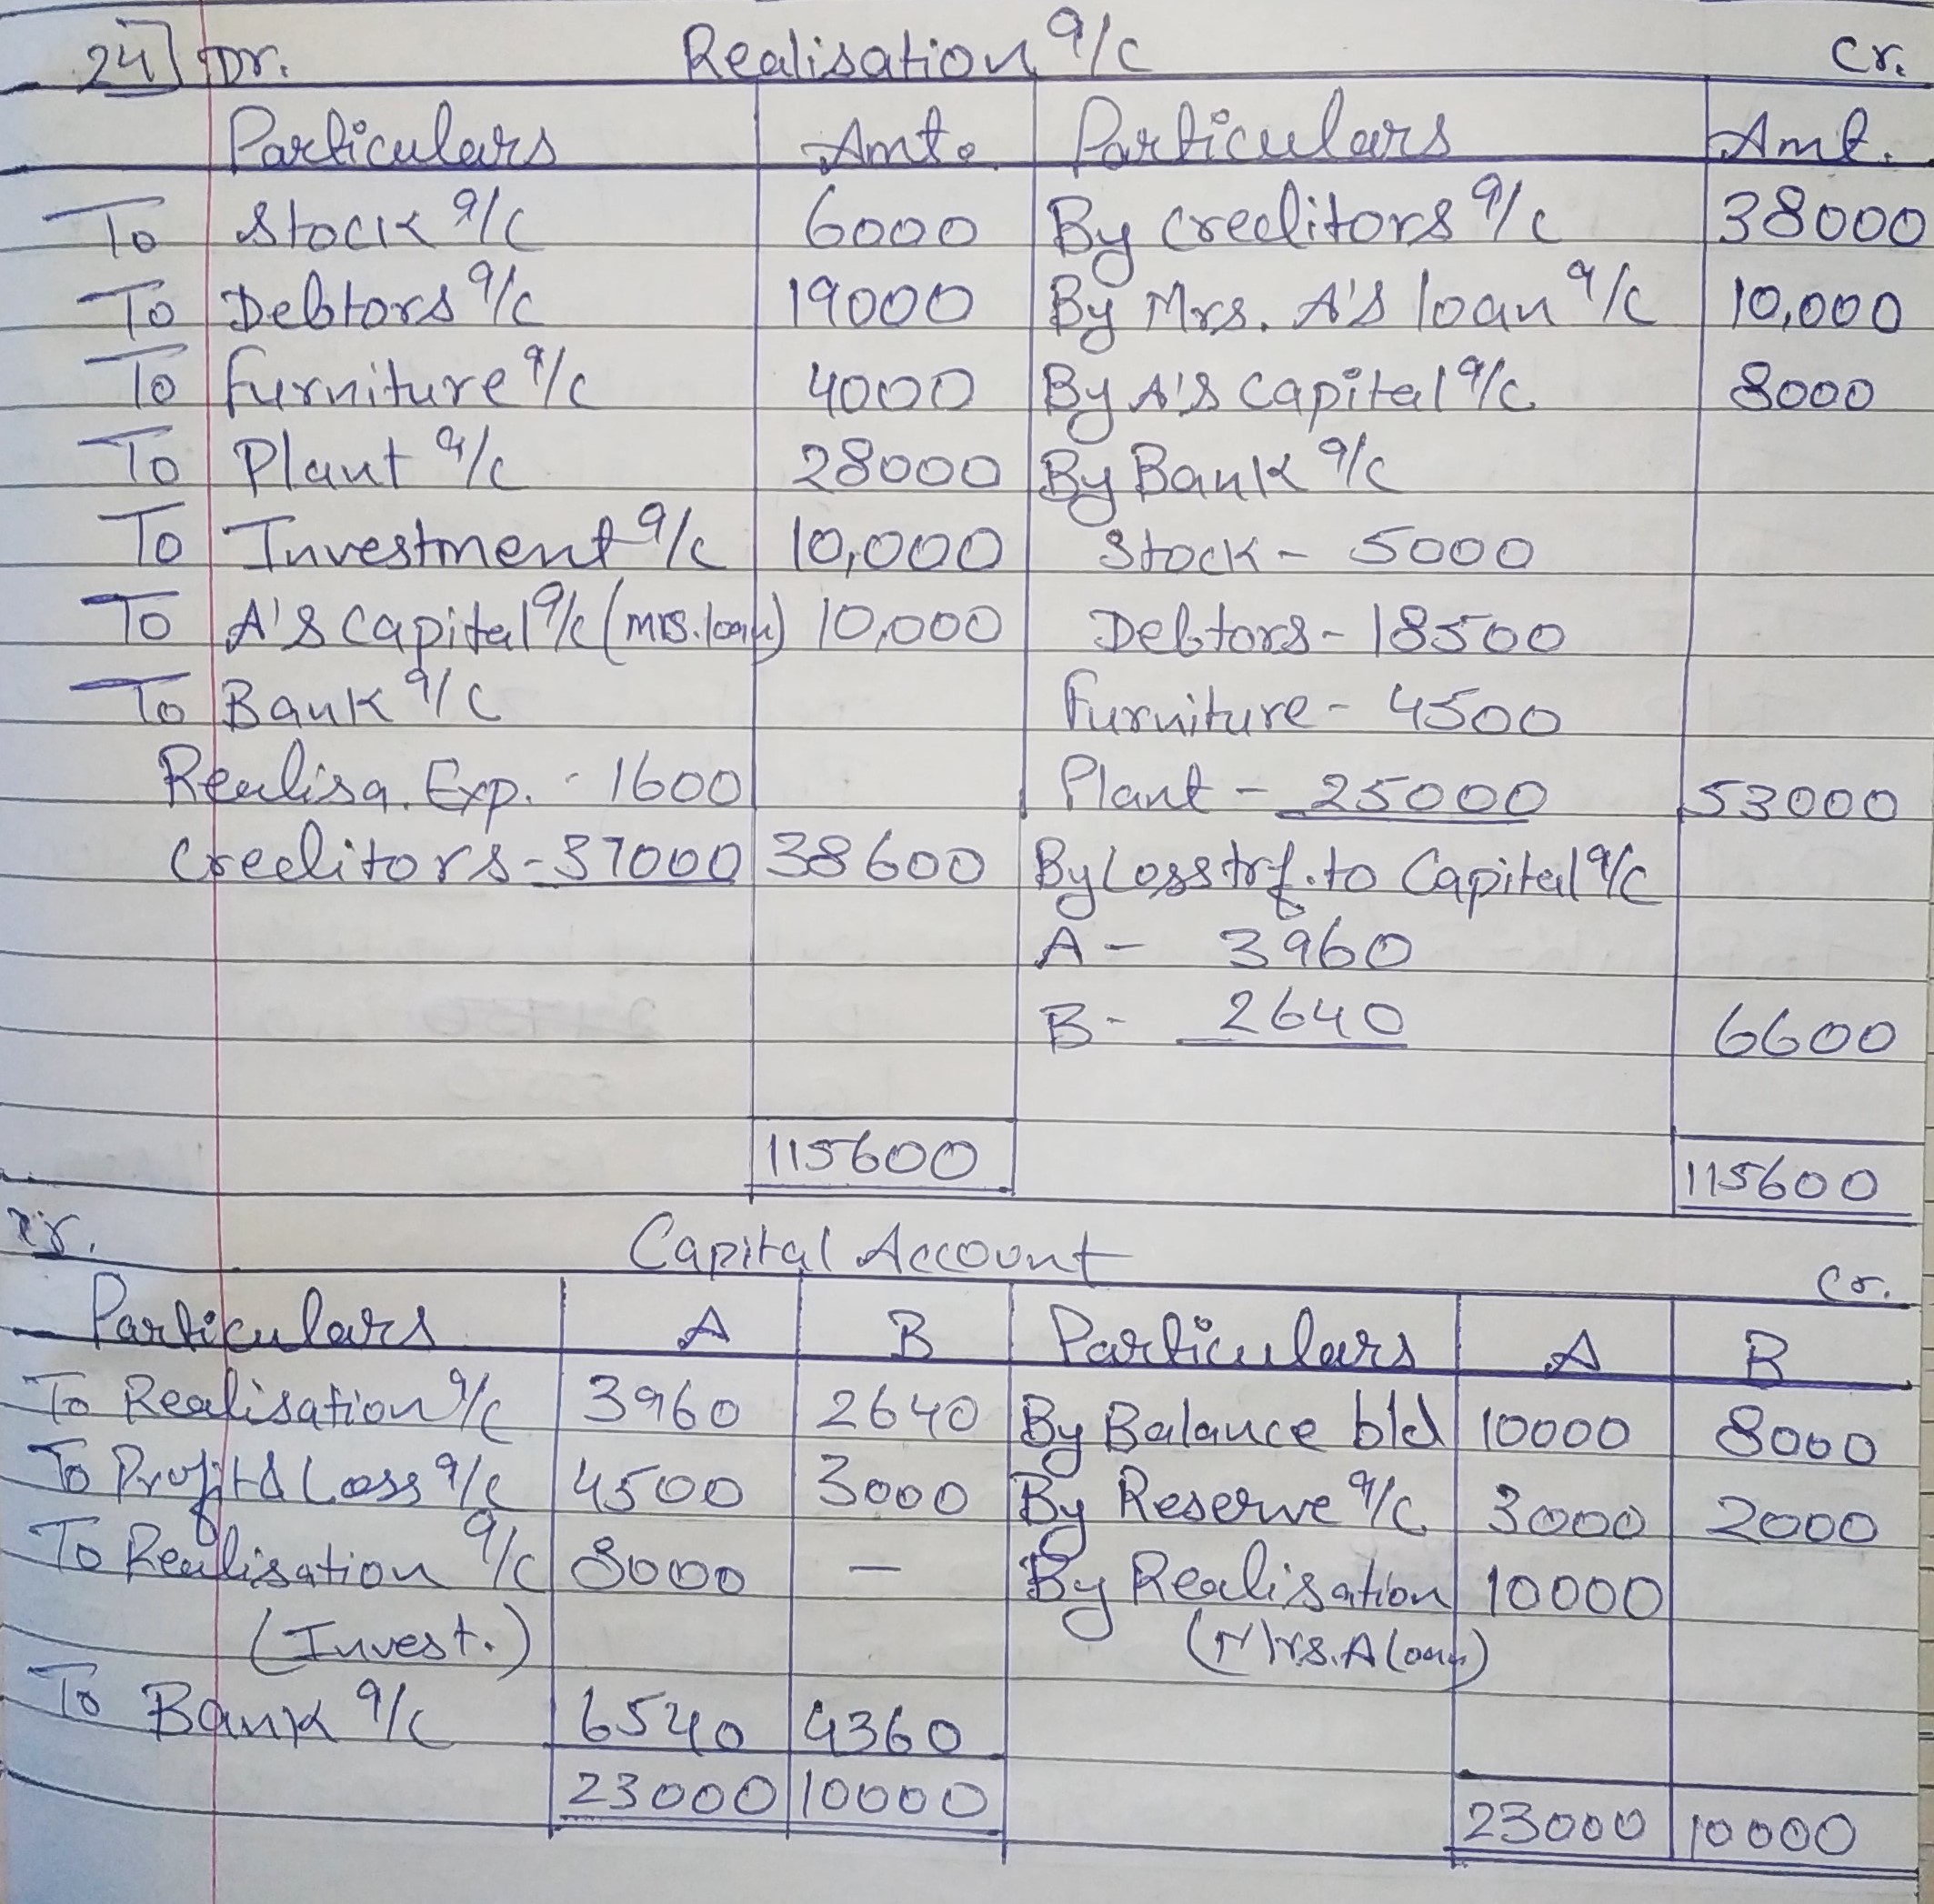 24] Dr. Realisation a/c Cr.
Particulars Amt. Particulars Amt.
To Stock a/c 6000 By Creditors a/c 38000
To Debtors a/c 19000 By Mrs. A's loan a/c 10,000
To Furniture a/c 4000 By A's Capital a/c 8000
To Plant a/c 28000 By Bank a/c
To Investment a/c 10,000 Stock - 5000
To A's Capital a/c (Mrs. loan) 10,000 Debtors - 18500
To Bank a/c Furniture - 4500
Realisa. Exp. - 1600 Plant - 25000 53000
Creditors - 37000 38600 By Loss trf. to Capital a/c
A - 3960
B - 2640 6600
115600 115600
Dr. Capital Account Cr.
Particulars A B Particulars A B
To Realisation a/c 3960 2640 By Balance b/d 10000 8000
To Profit & Loss a/c 4500 3000 By Reserve a/c 3000 2000
To Realisation a/c 8000 - By Realisation 10000
(Invest.) (Mrs. A loan)
To Bank a/c 6540 4360
23000 10000 23000 10000